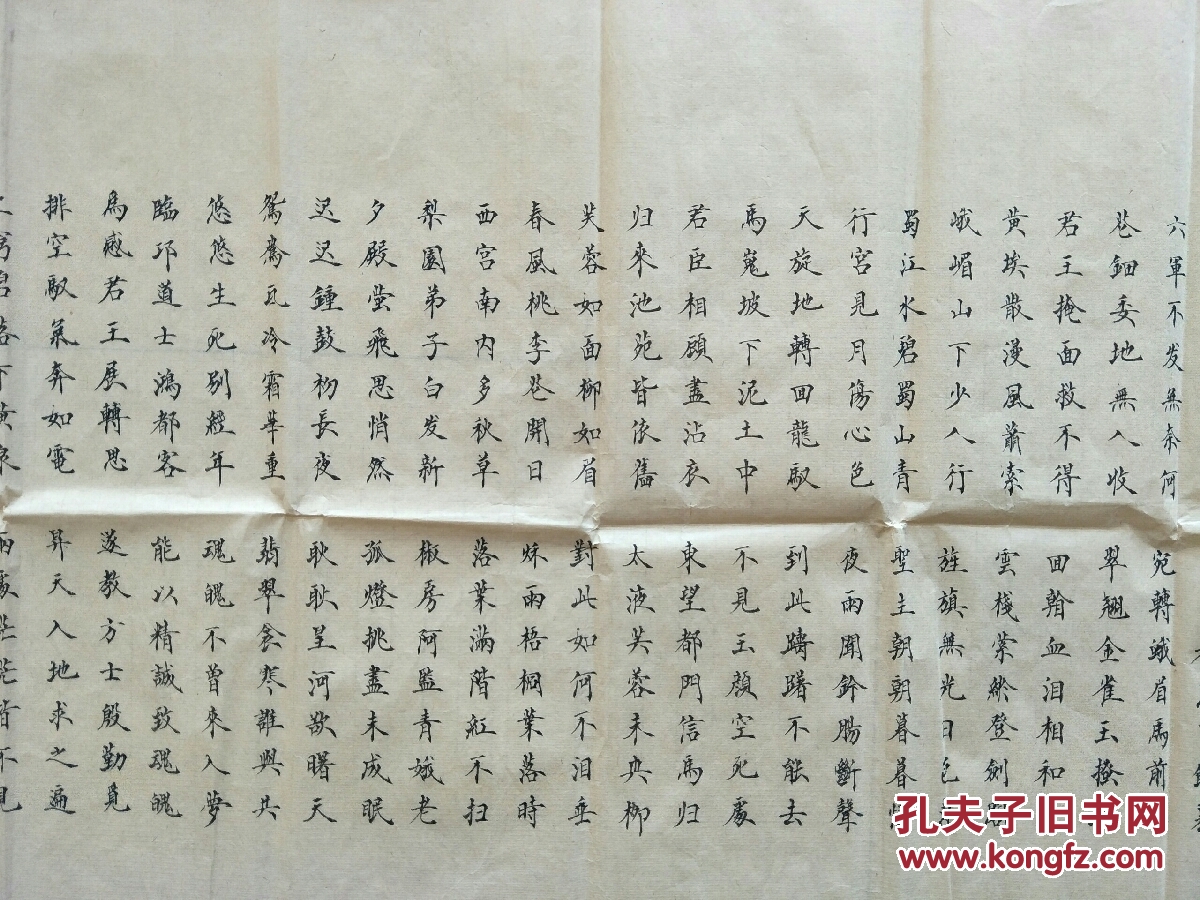 六軍不发無奈何 宛轉蛾眉馬前
花鈿委地無人收 翠翘金雀玉搔
君王掩面救不得 回翰血泪相和
黄埃散漫風蕭索 雲棧萦紆登劍
峨嵋山下少人行 旌旗無光日色
蜀江水碧蜀山青 聖主朝朝暮暮
行宮見月傷心色 夜雨聞鈴腸斷聲
天旋地轉回龍馭 到此躊躇不能去
馬嵬坡下泥土中 不見玉顔空死處
君臣相顧盡沾衣 東望都門信馬归
归來池苑皆依舊 太液芙蓉未央柳
芙蓉如面柳如眉 對此如何不泪垂
春風桃李花開日 秋雨梧桐葉落時
西宮南内多秋草 落葉滿階紅不扫
梨園弟子白发新 椒房阿監青娥老
夕殿螢飛思悄然 孤燈挑盡未成眠
迟迟鍾鼓初長夜 耿耿呈河欲曙天
鴛鴦瓦冷霜華重 翡翠衾寒誰與共
悠悠生死別經年 魂魄不曾來入夢
臨邛道士鴻都客 能以精誠致魂魄
爲感君王展轉思 遂教方士殷勤覓
排空馭氣奔如電 昇天入地求之遍
窮碧落下黄泉 兩處茫茫皆不見
孔夫子旧书网
www.kongfz.com